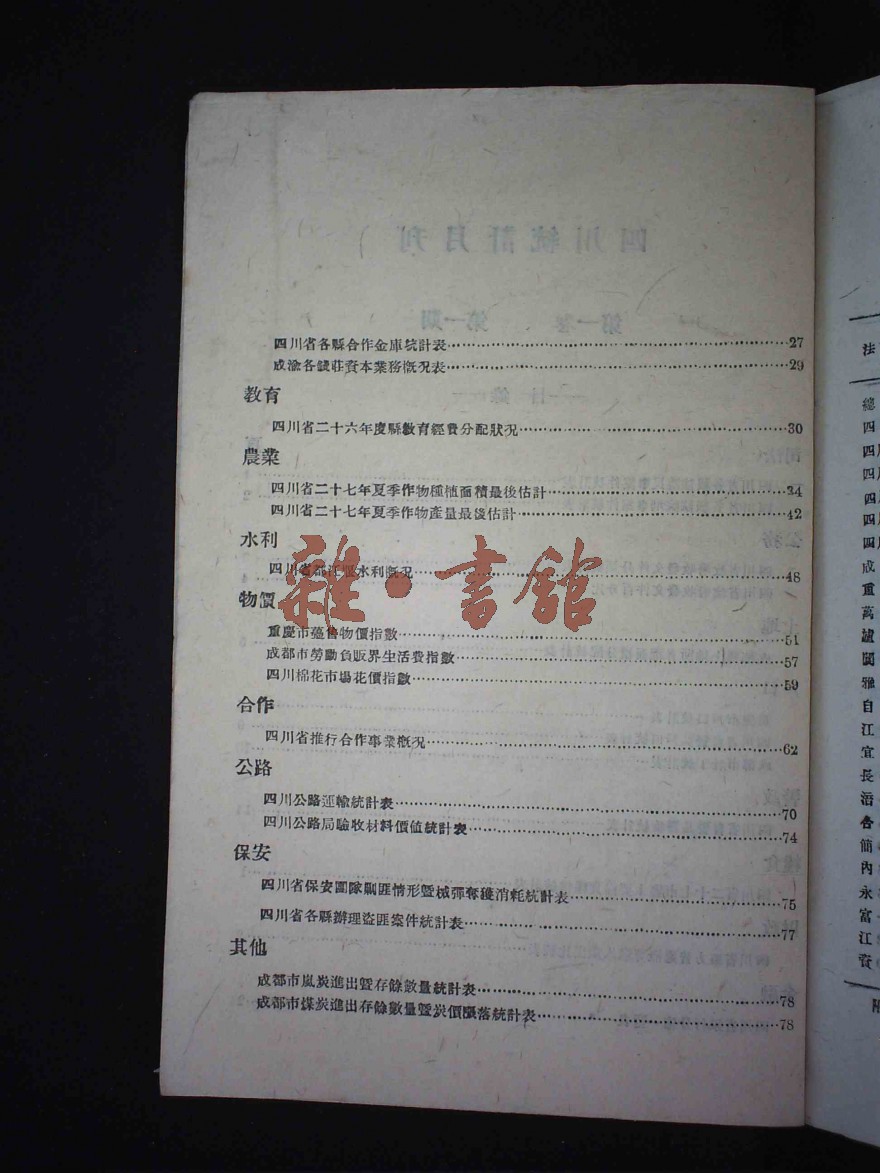 四川省各縣合作金庫統計表……27
成渝各錢莊資本業務概况表……29
教育
四川省二十六年度縣敎育經費分配狀况……30
農業
四川省二十七年夏季作物種植面積最後估計……34
四川省二十七年夏季作物產量最後估計……42
水利
四川省都江堰水利概况……48
物價
重慶市躉售物價指數……51
成都市勞動負販界生活費指數……57
四川棉花市場花價指數……59
合作
四川省推行合作事業概况……62
公路
四川公路運輸統計表……70
四川公路局驗收材料價値統計表……74
保安
四川省保安團隊剿匪情形曁械彈奪獲消耗統計表……75
四川省各縣辦理盜匪案件統計表……77
其他
成都市嵐炭進出曁存餘數量統計表……78
成都市煤炭進出存餘數量曁炭價漲落統計表……78
雜·書館
法
總
四
四川
四川
四川
四川
四川
成
重
萬
瀘
閬
雅
自
江
宜
長
涪
合
簡
內
永
富
江
資
附